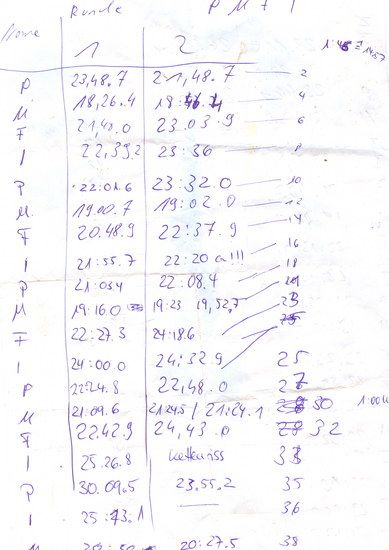 Runde P M F I
Name 1 2
P 23,48.7 21,48.7 2
M 18,26.4 18: 4
F 21,48.0 23.03.9 6
I 22,39,2 23:36 8
P 22:01.6 23:32.0 10
M. 19.00.7 19:02.0 12
F 20.48.9 22:37.9 14
I 21:55.7 22:20 a!!! 16
P 21:05,4 22:08.4 18
M 19:16.0 19:23 19,52,7
F 22:27.3 24:18.6 23
I 24:00.0 24,32.9 25
P 22:24.8 22,48.0 27
M 21:09.6 21:24.1 30
F 22.42.9 24,43.0 32
I 25.26.8 Kettenriss 33
P 30.09.5 23.55.2 35
I 25:43.1 — 36
M 20:27.5 38